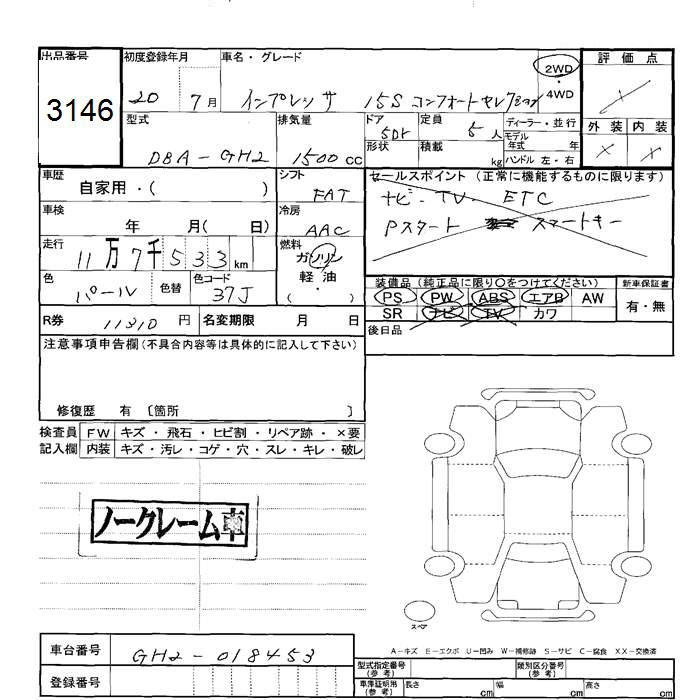 出品番号
3146
初度登録年月 車名・グレード
20 7月 インプレッサ 15S コンフォートセレクション
2WD
4WD
評価点
外装 内装
型式 排気量 ドア 定員 ディーラー・並行
DBA-GH2 1500cc 5Dr 5人
形状 積載 kg
モデル年式 年
ハンドル 左・右
車歴 シフト
自家用・( ) FAT
車検 冷房
年 月( 日) AAC
走行 燃料
11万7千533km ガソリン
軽・油
( ・ )
色 色替 色コード
パール 37J
R券 11310円 名変期限 月 日
セールスポイント(正常に機能するものに限ります)
ナビ・TV・ETC
Pスタート スマートキー
装備品(純正品に限り○をつけてください) 新車保証書
PS PW ABS エアB AW 有・無
SR ナビ TV カワ
後日品
注意事項申告欄(不具合内容等は具体的に記入して下さい)
修復歴 有 〔箇所 〕
検査員 FW キズ・飛石・ヒビ割・リペア跡・×要
記入欄 内装 キズ・汚レ・コゲ・穴・スレ・キレ・破レ
ノークレーム車
スペア
A-キズ E-エクボ U-凹み W-補修跡 S-サビ C-腐食 XX-交換済
車台番号 GH2-018453
登録番号
型式指定番号(参考) 類別区分番号(参考)
車庫証明用(参考) 長さ cm 幅 cm 高さ cm